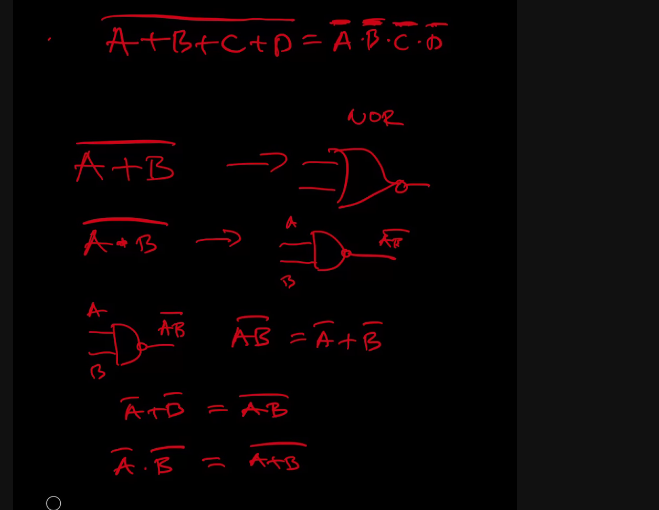 A̅+̅B̅+̅C̅+̅D̅ = A̅ · B̅ · C̅ · D̅
NOR
A̅+̅B̅ →
A̅·̅B̅ → A A̅B̅
B
A A̅B̅ A̅B̅ = A̅ + B̅
B
A̅ + B̅ = A̅B̅
A̅ · B̅ = A̅+̅B̅